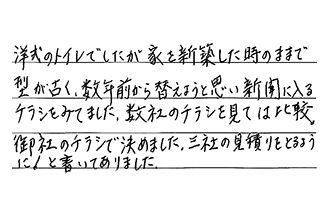 洋式のトイレでしたが家を新築した時のままで
型が古く、数年前から替えようと思い新聞に入る
チラシをみてました。数社のチラシを見ては比較。
御社のチラシで決めました。三社の見積りをとるよう
に！と書いてありました。